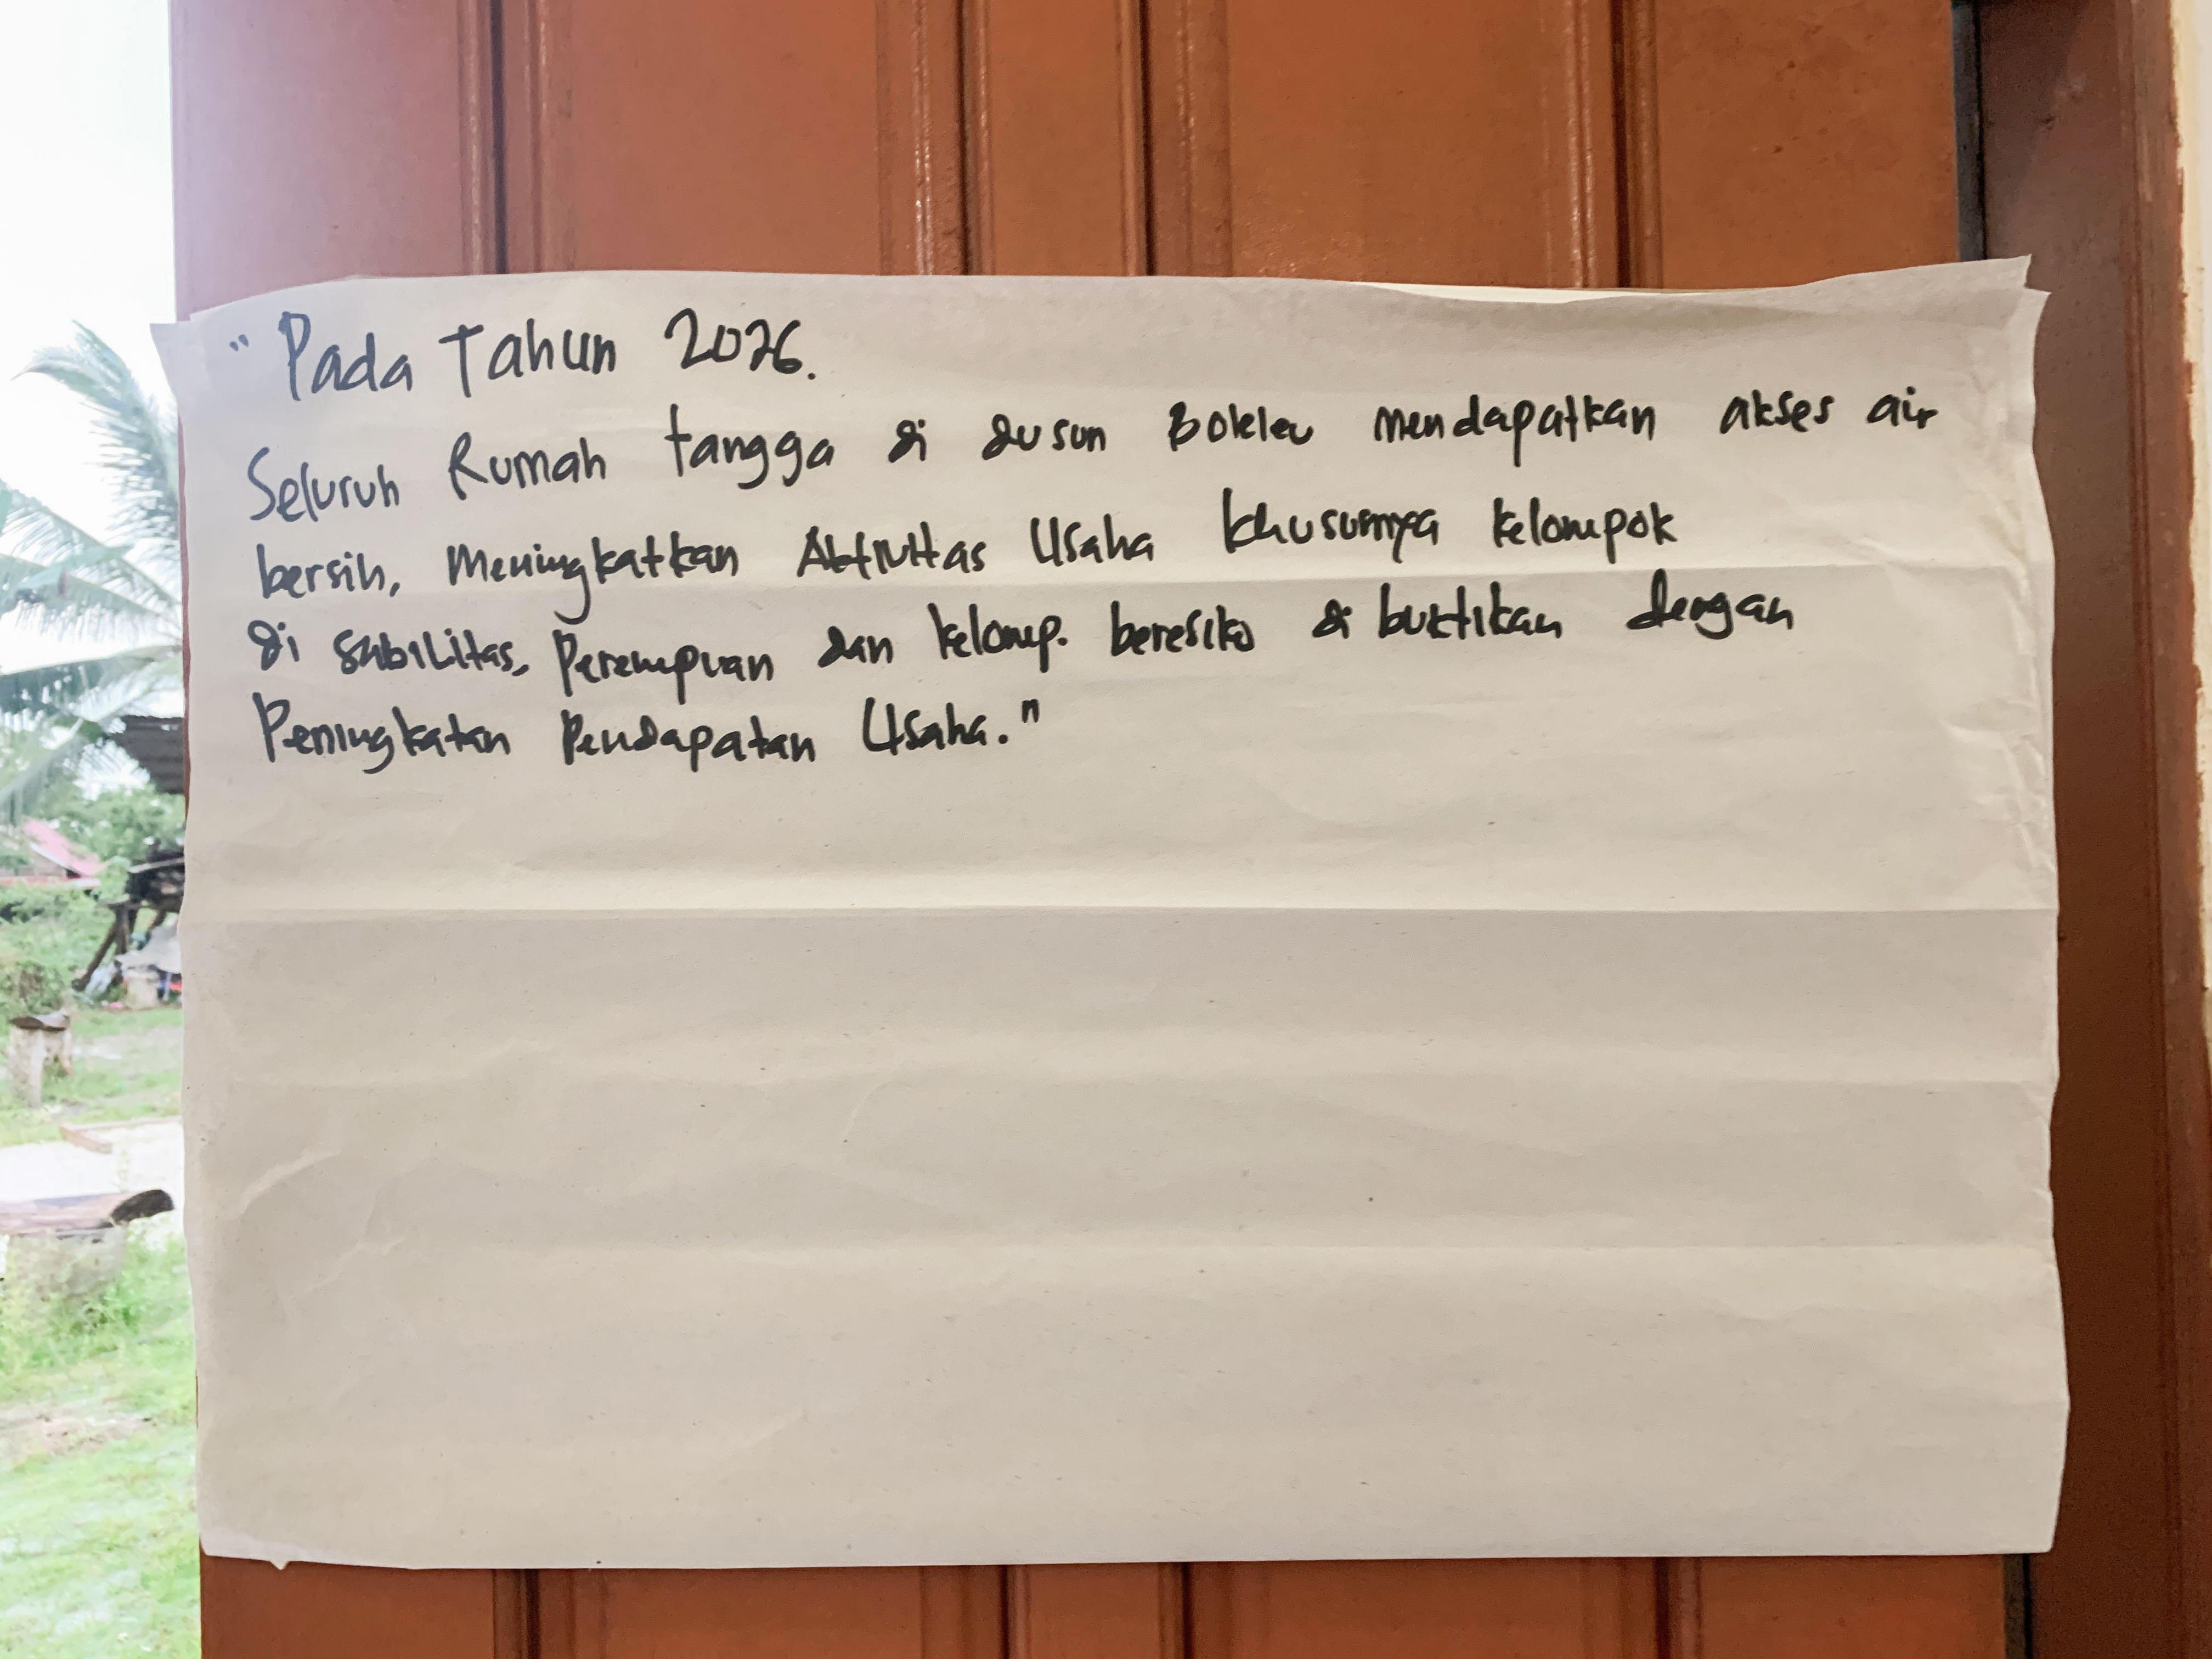 "Pada Tahun 2026.
Seluruh Rumah tangga di dusun Bokleu mendapatkan akses air
bersih, Meningkatkan Aktivitas Usaha khususnya kelompok
di sabilitas, Perempuan dan kelomp. beresiko di buktikan dengan
Peningkatan Pendapatan Usaha."